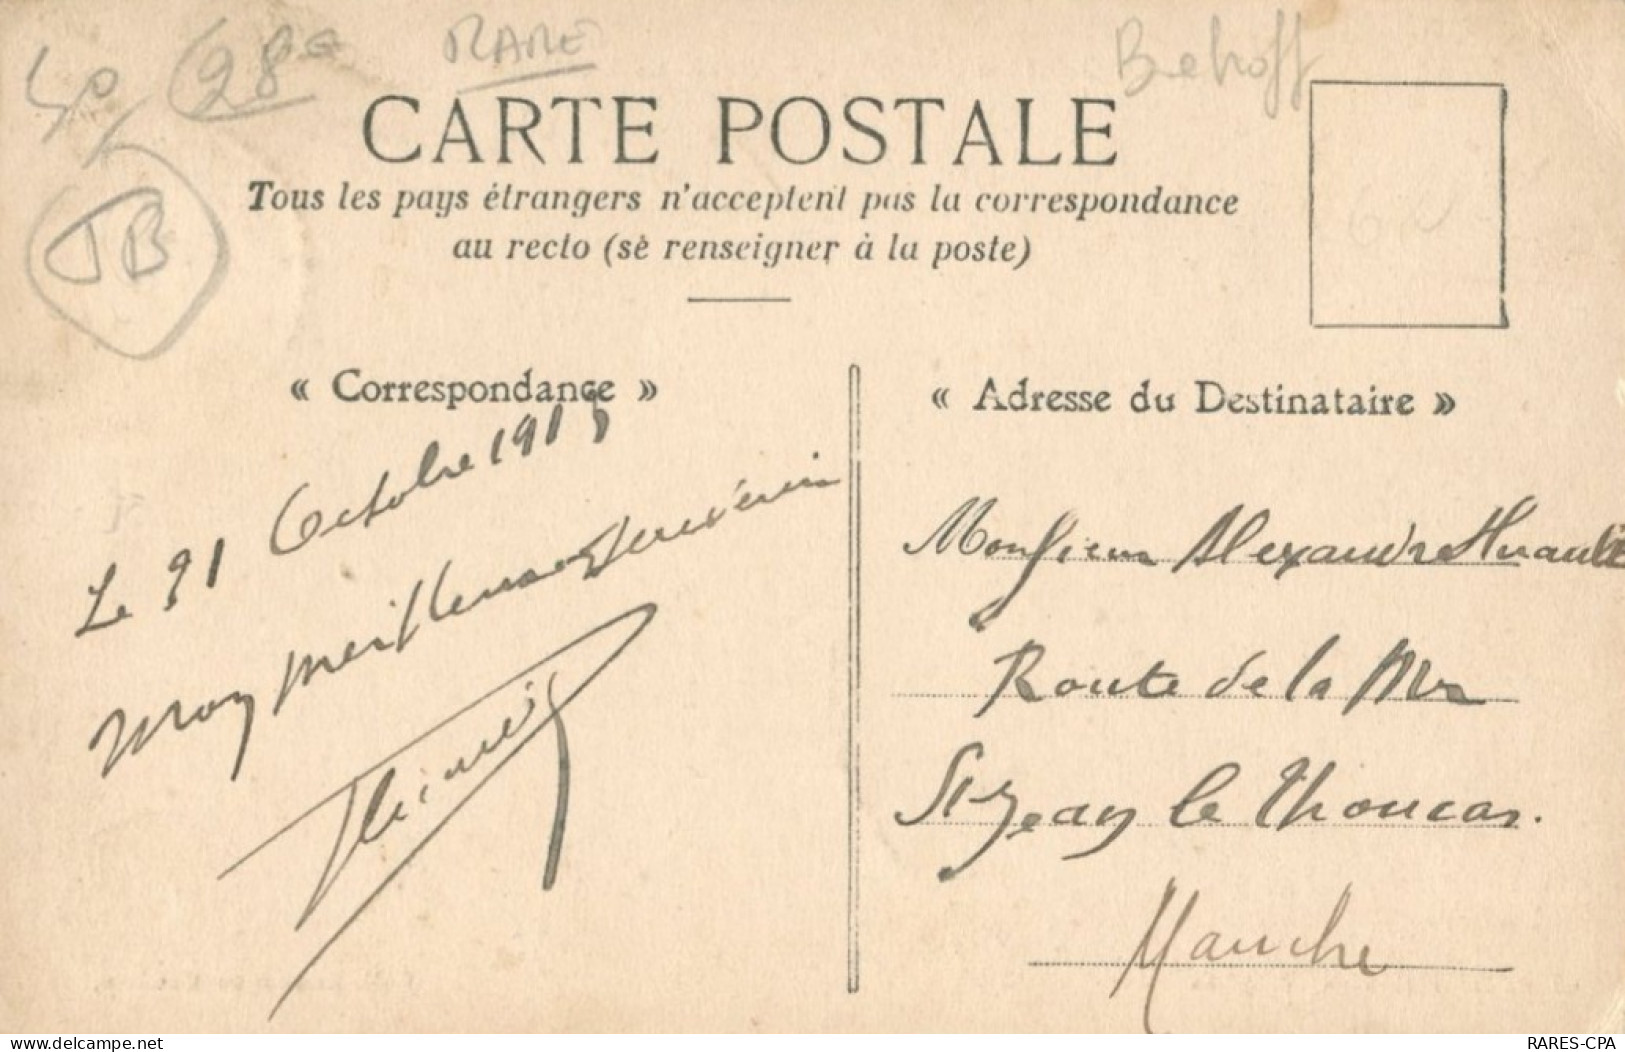 50
28
RARE
Behoff
TB
CARTE POSTALE
Tous les pays étrangers n'acceptent pas la correspondance
au recto (sè renseigner à la poste)
« Correspondance »
Le 21 Octobre 191
Mon meilleur Souvenir
« Adresse du Destinataire »
Monsieur Alexandre Huault
Route de la Mer
St Jean le Thoucas.
Manche
RARES-CPA